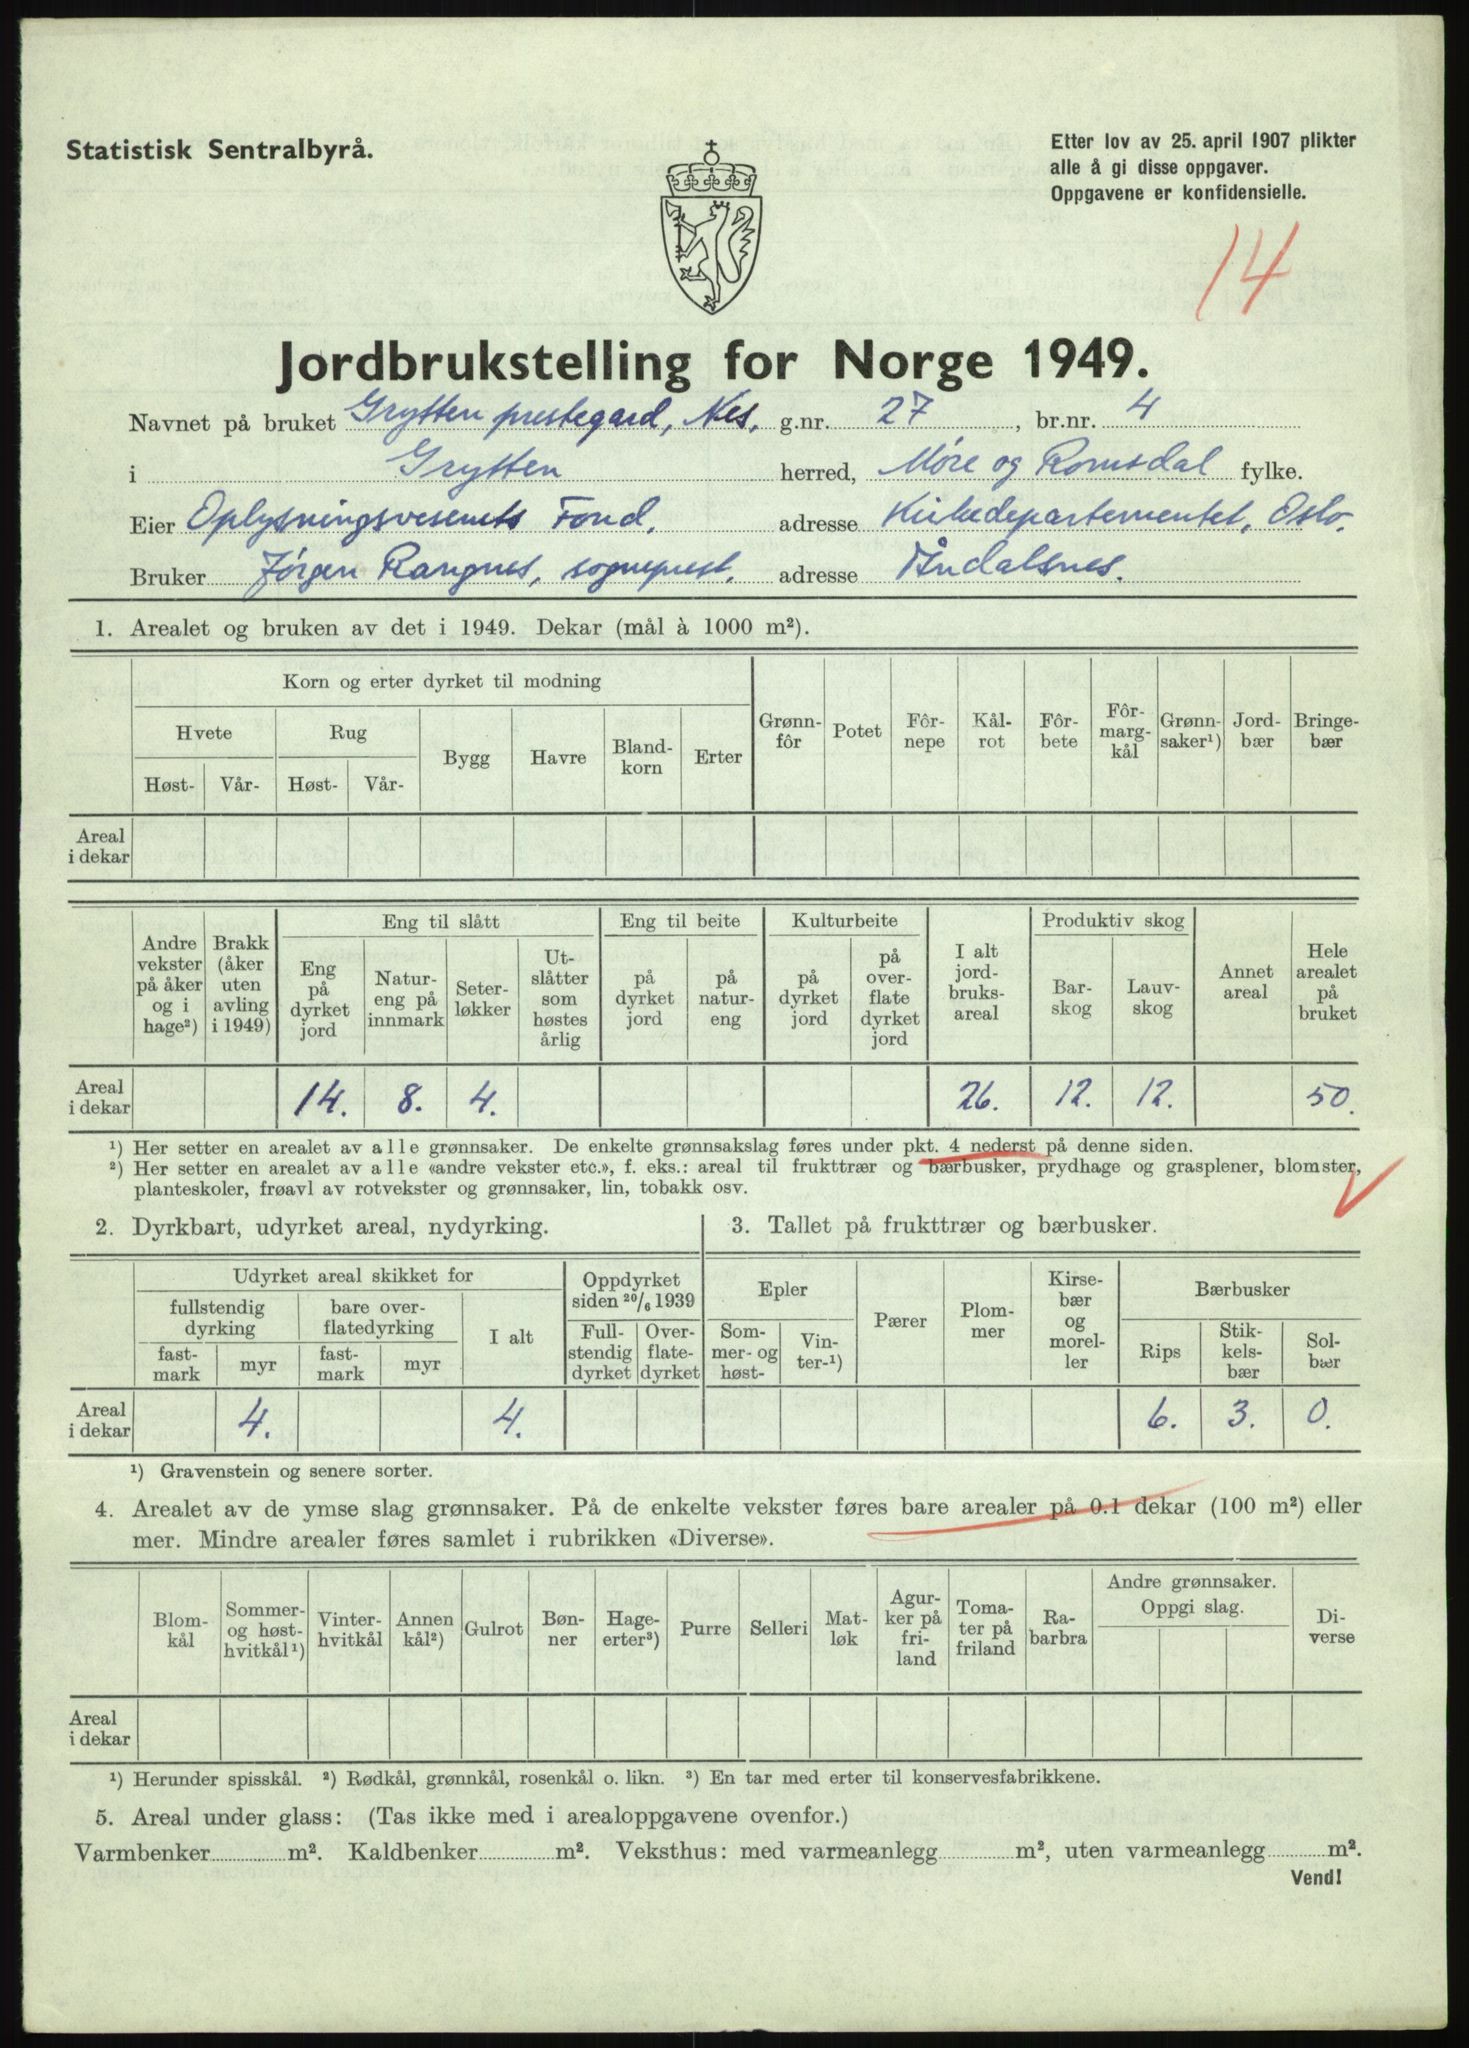 Statistisk Sentralbyrå.
Etter lov av 25. april 1907 plikter
alle å gi disse oppgaver.
Oppgavene er konfidensielle.
14
Jordbrukstelling for Norge 1949.
Navnet på bruket Grytten prestegard, Nes, g.nr. 27, br.nr. 4
i Grytten herred, Møre og Romsdal fylke.
Eier Oplysningsvesenets Fond. adresse Kirkedepartementet, Oslo.
Bruker Jørgen Rangnes, sogneprest. adresse Åndalsnes.
1. Arealet og bruken av det i 1949. Dekar (mål à 1000 m²).
Korn og erter dyrket til modning
Hvete Rug Bygg Havre Bland-korn Erter
Høst- Vår- Høst- Vår-
Grønn-fôr Potet Fôr-nepe Kål-rot Fôr-bete Fôr-marg-kål Grønn-saker¹) Jord-bær Bringe-bær
Areal
i dekar
Andre vekster på åker og i hage²) Brakk (åker uten avling i 1949)
Eng til slått
Eng på dyrket jord Natur-eng på innmark Seter-løkker Ut-slåtter som høstes årlig
Eng til beite
på dyrket jord på natur-eng
Kulturbeite
på dyrket jord på over-flate dyrket jord
I alt jord-bruks-areal
Produktiv skog
Bar-skog Lauv-skog
Annet areal Hele arealet på bruket
Areal
i dekar 14. 8. 4. 26. 12. 12. 50.
¹) Her setter en arealet av alle grønnsaker. De enkelte grønnsakslag føres under pkt. 4 nederst på denne siden.
²) Her setter en arealet av alle «andre vekster etc.», f. eks.: areal til frukttrær og bærbusker, prydhage og grasplener, blomster,
planteskoler, frøavl av rotvekster og grønnsaker, lin, tobakk osv.
2. Dyrkbart, udyrket areal, nydyrking.
3. Tallet på frukttrær og bærbusker.
Udyrket areal skikket for
fullstendig dyrking bare over-flatedyrking I alt
fast-mark myr fast-mark myr
Oppdyrket siden 20/6 1939
Full-stendig dyrket Over-flate-dyrket
Epler
Som-mer- og høst- Vin-ter-¹)
Pærer Plom-mer Kirse-bær og morel-ler
Bærbusker
Rips Stik-kels-bær Sol-bær
Areal
i dekar 4. 4. 6. 3. 0.
¹) Gravenstein og senere sorter.
4. Arealet av de ymse slag grønnsaker. På de enkelte vekster føres bare arealer på 0.1 dekar (100 m²) eller
mer. Mindre arealer føres samlet i rubrikken «Diverse».
Blom-kål Sommer- og høst-hvitkål¹) Vinter-hvitkål Annen kål²) Gulrot Bøn-ner Hage-erter³) Purre Selleri Mat-løk Agur-ker på fri-land Toma-ter på friland Ra-barbra Andre grønnsaker. Oppgi slag. Di-verse
Areal
i dekar
¹) Herunder spisskål. ²) Rødkål, grønnkål, rosenkål o. likn. ³) En tar med erter til konservesfabrikkene.
5. Areal under glass: (Tas ikke med i arealoppgavene ovenfor.)
Varmbenker m². Kaldbenker m². Veksthus: med varmeanlegg m², uten varmeanlegg m².
Vend!